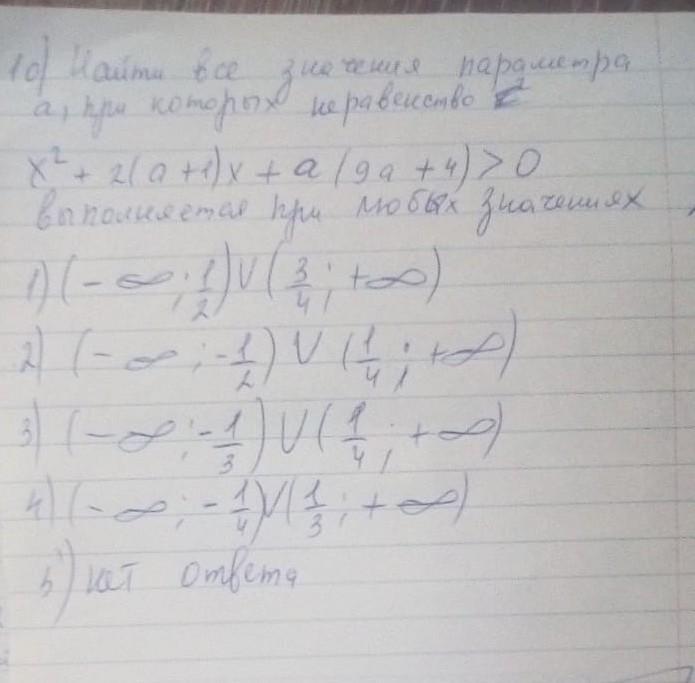 10) Найти все значения параметра
а, при которых неравенство
x² + 2(a+1)x + a(9a+4) > 0
выполняется при любых значениях
1) (-∞; 1/2) ∪ (3/4; +∞)
2) (-∞; -1/2) ∪ (1/4; +∞)
3) (-∞; -1/3) ∪ (1/4; +∞)
4) (-∞; -1/4) ∪ (1/3; +∞)
5) нет ответа